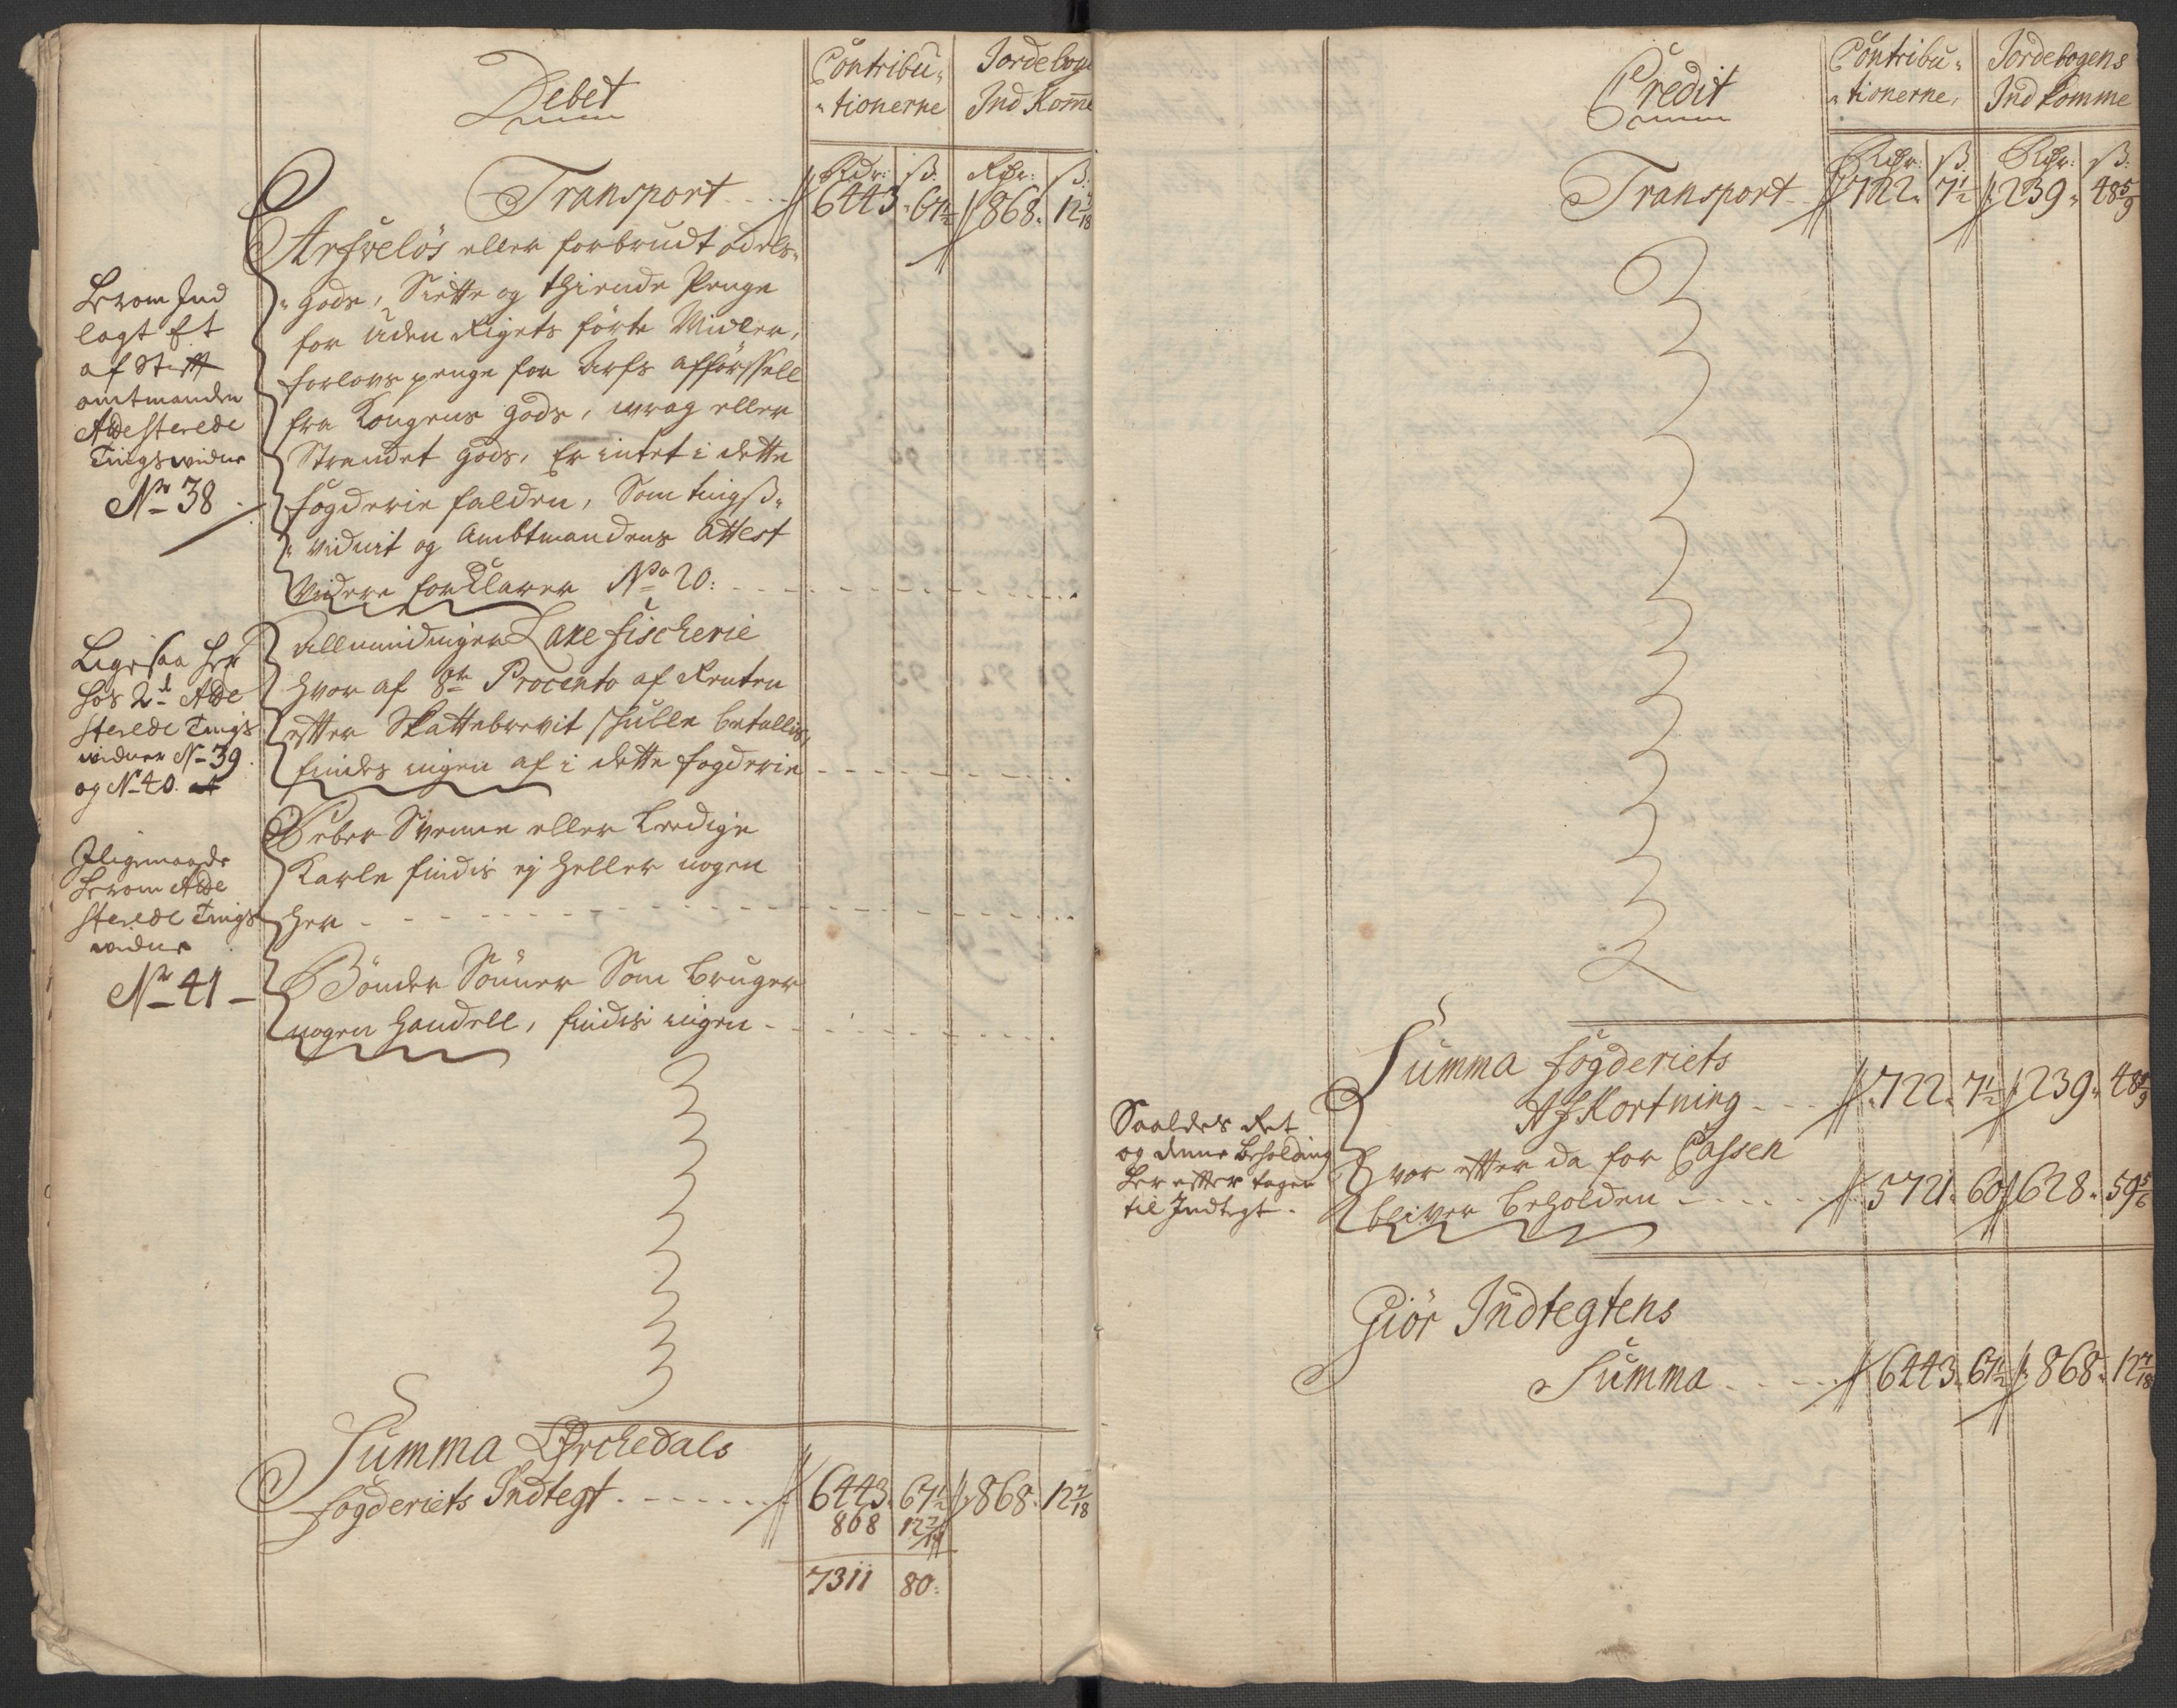 Debet
Contribu-
-tionerne
Jordebog
Ind Komme
Rdr: ß. Rdr: ß.
Transport 6443. 67½ 868. 12 7/18
Arfveløs eller forbrudt odels-
-gods, Siette og thiende Penge
for uden Rigets førte Midler,
forlovs penge for Arfs afførssell
fra Kongens gods, wrag eller
Strandet gods, Er intet i dette
fogderie falden, Som tingß-
-vidnit og Ambtmandens Attest
Videre forklarer No 20:
Herom Ind
lagt Et
af Stift
amtmanden
Attesterede
Tingswidne
No 38
Allmindingen Laxe fischerie
hvor af 8te Procento af Renten
efter Skattebrevit skulle betallis,
findes ingen af i dette fogderie
Ligesaa her
hos 2de Atte
sterede Tings
widner No 39
og No 40.
Peber Svenne eller Leedige
Karle findis ej heller nogen
her
Iligemaade
herom Atte
sterede Tings
widne
No 41
Bønder Sønner Som bruger
nogen handell, findis ingen
Summa Ørchedals
fogderiets Indtegt 6443. 67½ 868. 12 7/18
868 12 7/18
7311 80
Credit
Contribu-
-tionerne,
Jordebogens
Ind komme
Rdr: ß. Rdr: ß.
Transport 722. 7½ 239. 48 5/9
Summa fogderiets
AfKortning 722. 7½ 239. 48 5/9
Hvor efter da for Cassen
bliver beholden 5721. 60 628. 59 5/6
Saaledes Ret
og denne beholding
her efter tagen
til Indtegt.
Giør Indtegtens
Summa 6443. 67½ 868. 12 7/18